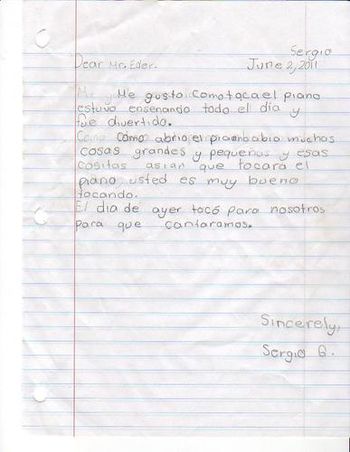 Sergio
Dear Mr. Eder. June 2, 2011
Me gusto Como toca el piano
estuvo ensenando todo el día y
fue divertido.
Como abrio el piano abia muchas
cosas grandes y pequeñas y esas
cositas asian que tocara el
piano usted es muy bueno
tocando.
El dia de ayer tocó para nosotros
para que cantaramos.
Sincerely,
Sergio G.